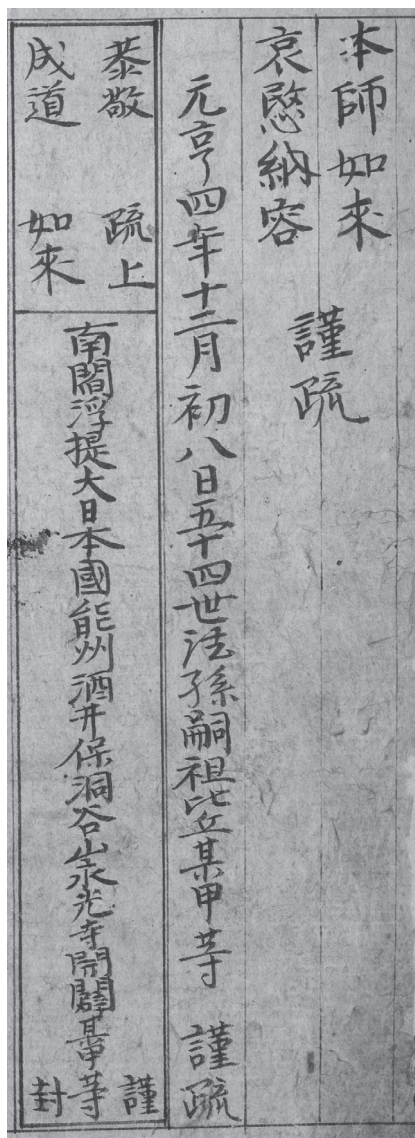 本師如來
哀愍納容　謹疏
元亨四年十二月初八日五十四世法孫嗣祖比丘某甲等　謹疏
恭敬　疏上
成道　如來
南閻浮提大日本國能州酒井保洞谷山永光寺開闢某甲等
謹
封